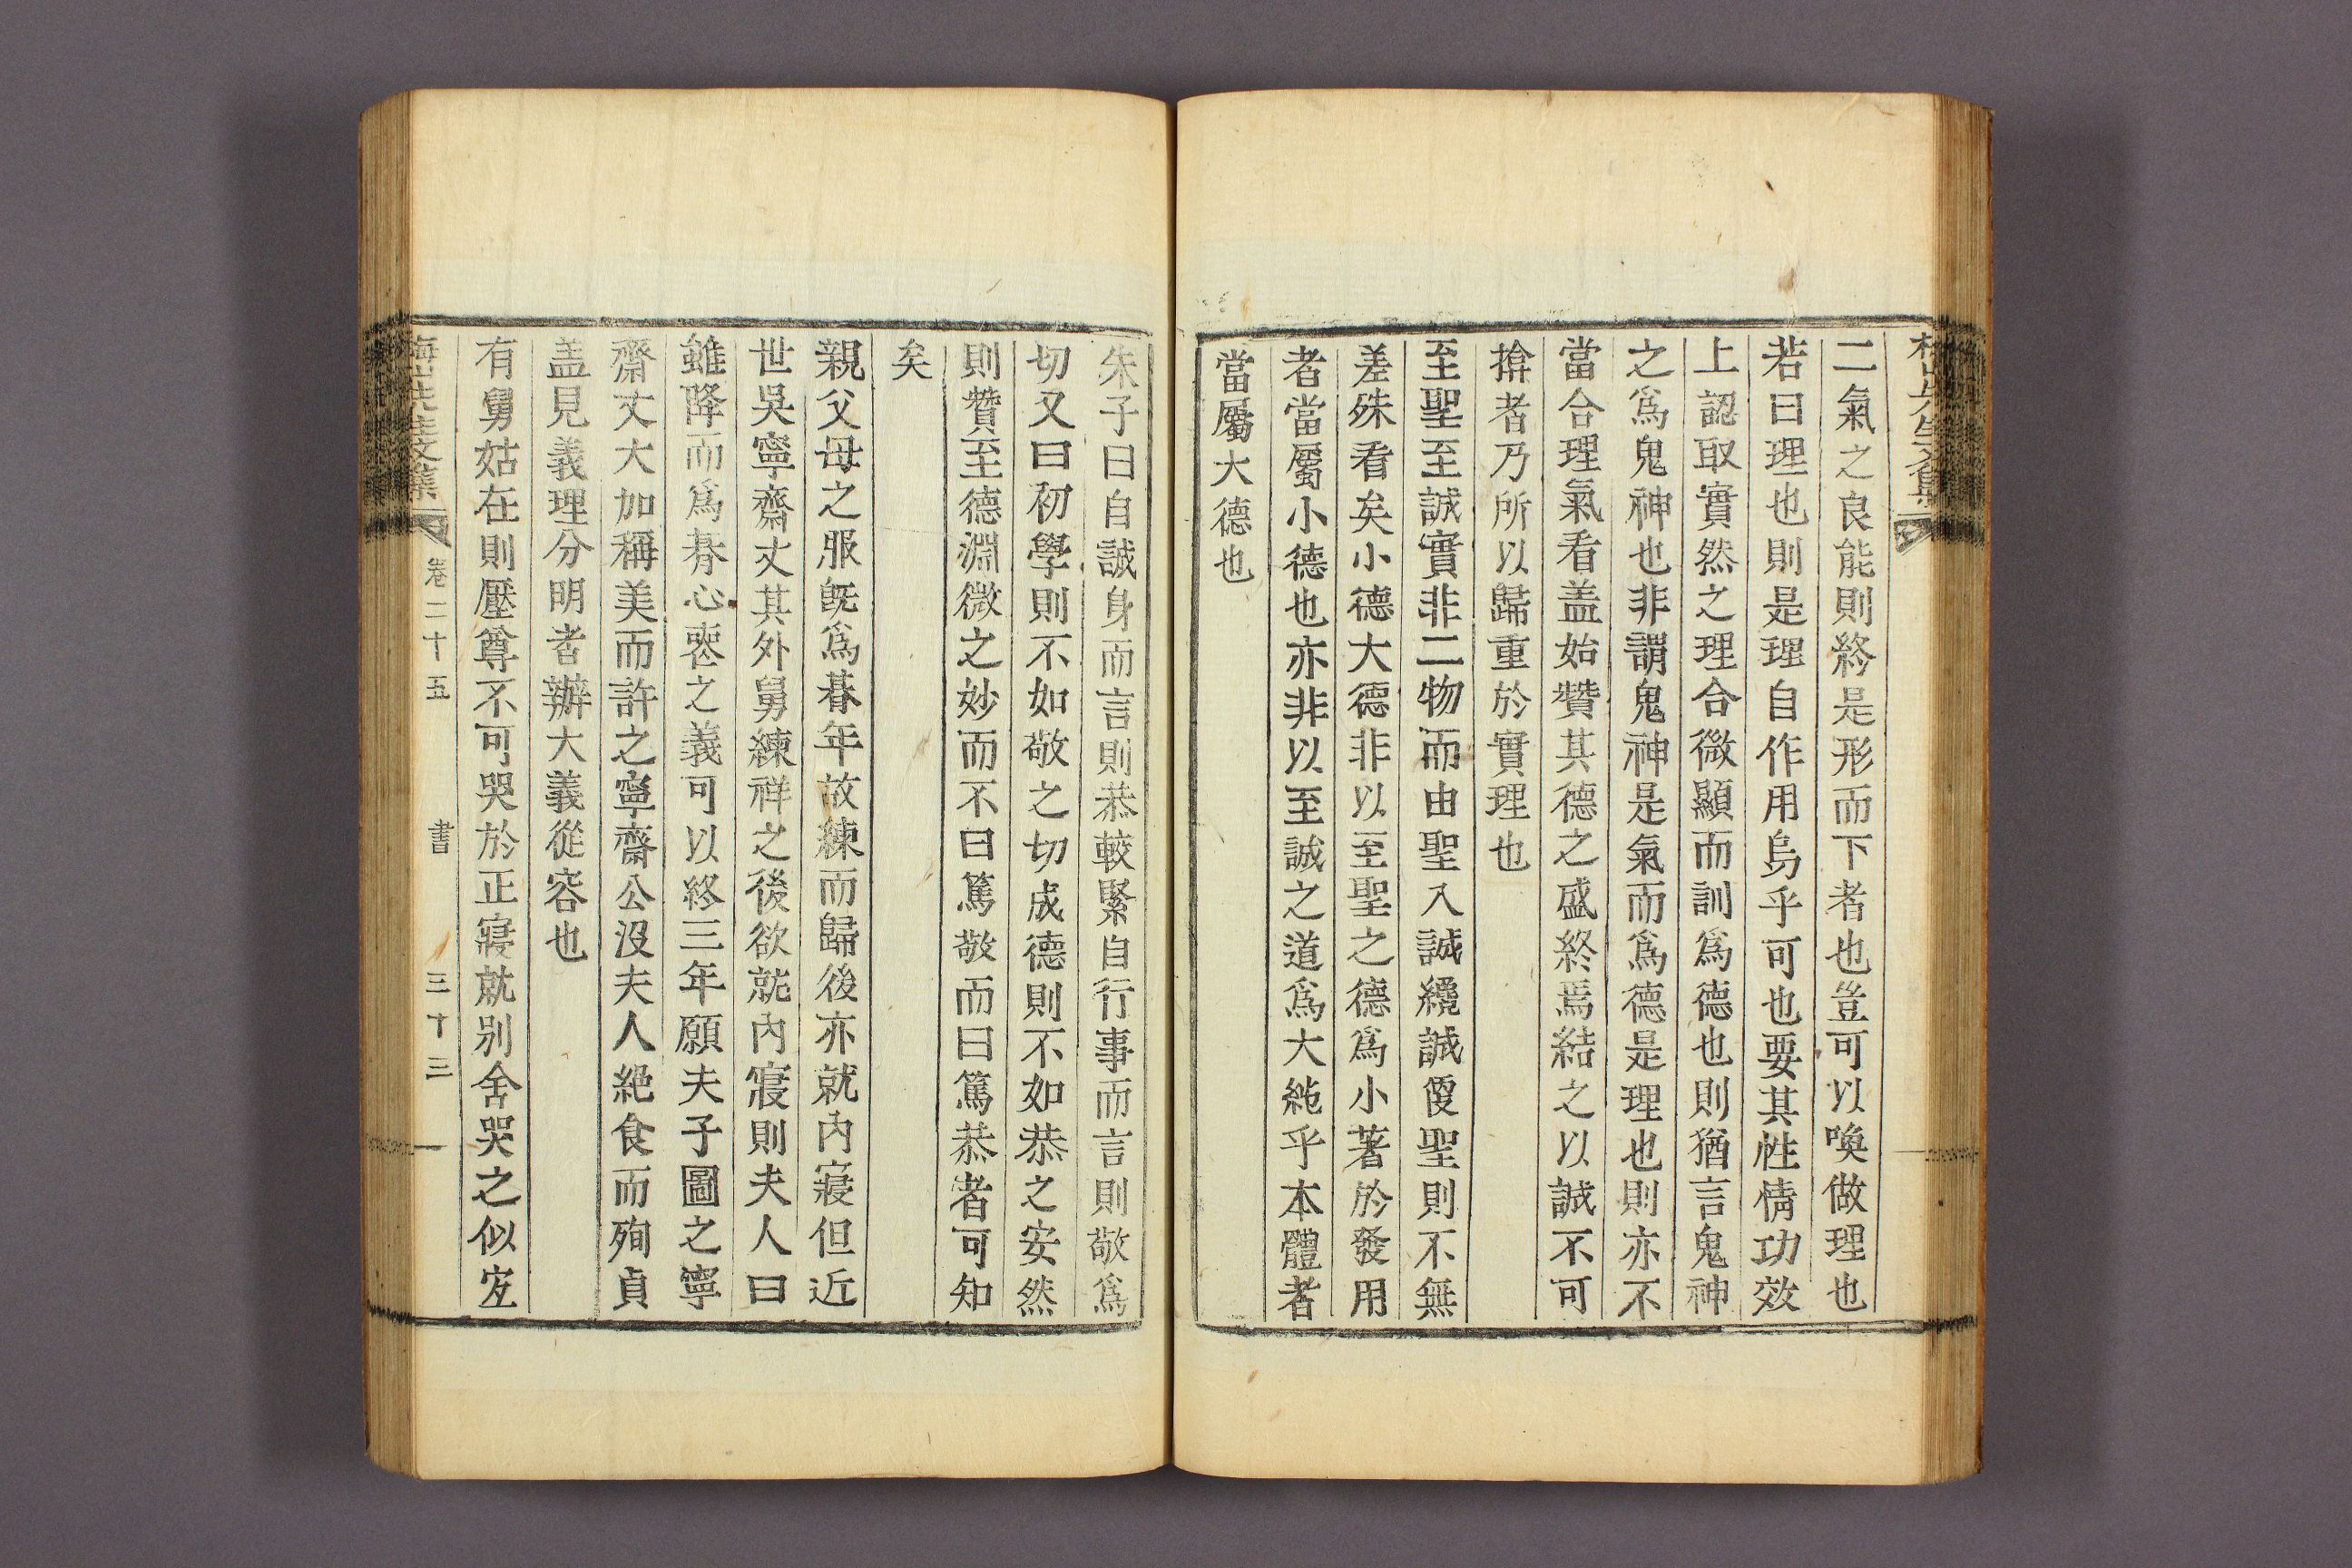 二氣之良能則終是形而下者也豈可以喚做理也
若曰理也則是理自作用烏乎可也要其性情功效
上認取實然之理合微顯而訓爲德也則猶言鬼神
之爲鬼神也非謂鬼神是氣而爲德是理也則亦不
當合理氣看盖始贊其德之盛終焉結之以誠不可
揜者乃所以歸重於實理也
至聖至誠實非二物而由聖入誠纔誠復聖則不無
差殊看矣小德大德非以至聖之德爲小著於發用
者當屬小德也亦非以至誠之道爲大純乎本體者
當屬大德也
朱子曰自誠身而言則恭較緊自行事而言則敬爲
切又曰初學則不如敬之切成德則不如恭之安然
則贊至德淵微之妙而不曰篤敬而曰篤恭者可知
矣
親父母之服旣爲朞年故練而歸後亦就內寢但近
世吳寧齋丈其外舅練祥之後欲就內寢則夫人曰
雖降而爲朞心喪之義可以終三年願夫子圖之寧
齋丈大加稱美而許之寧齋公沒夫人絶食而殉貞
盖見義理分明者辦大義從容也
有舅姑在則壓尊不可哭於正寢就別舍哭之似宜
梅山先生文集 卷二十五 書 三十三